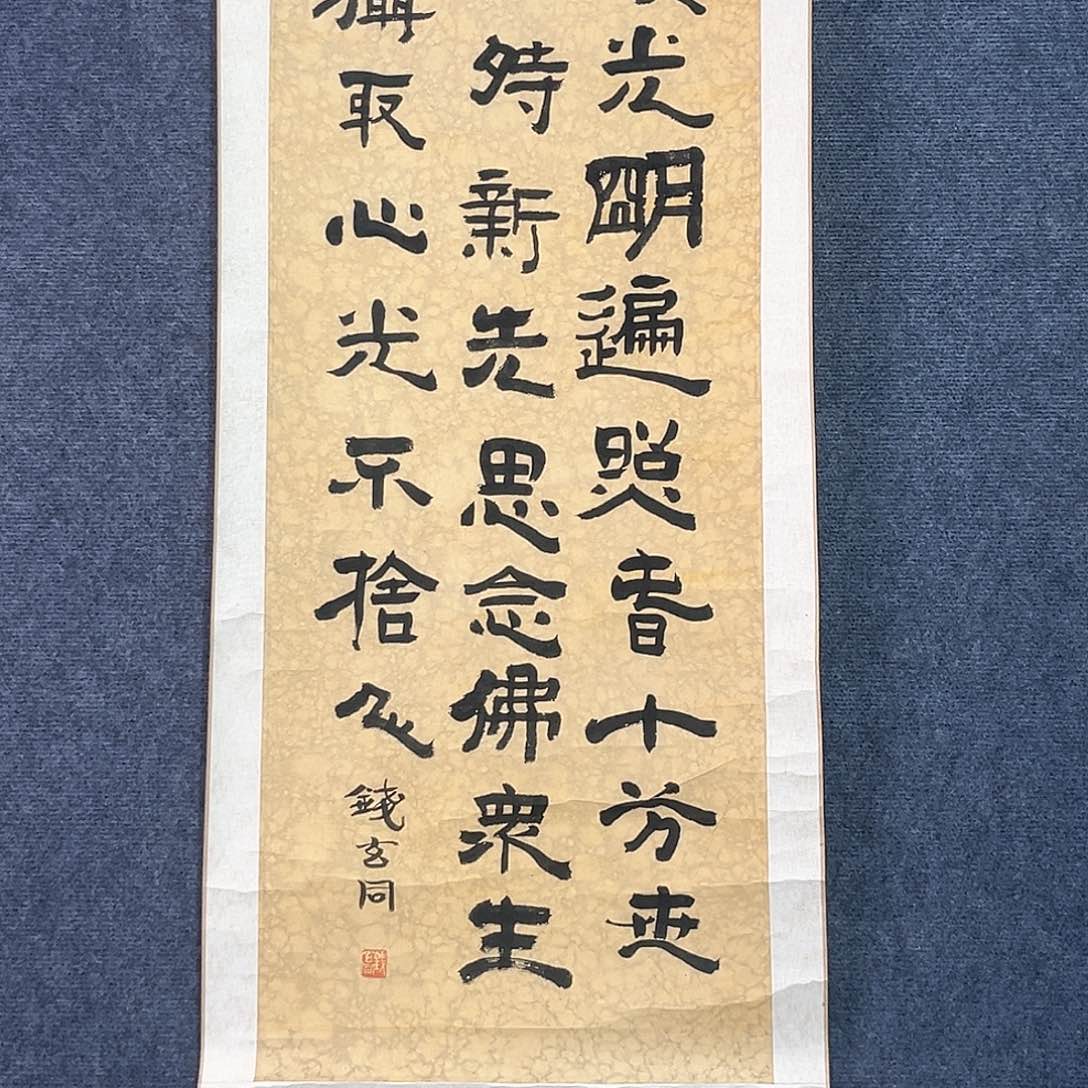 光明遍照十方世
新先思念佛眾生
攝取心光不捨
錢玄同